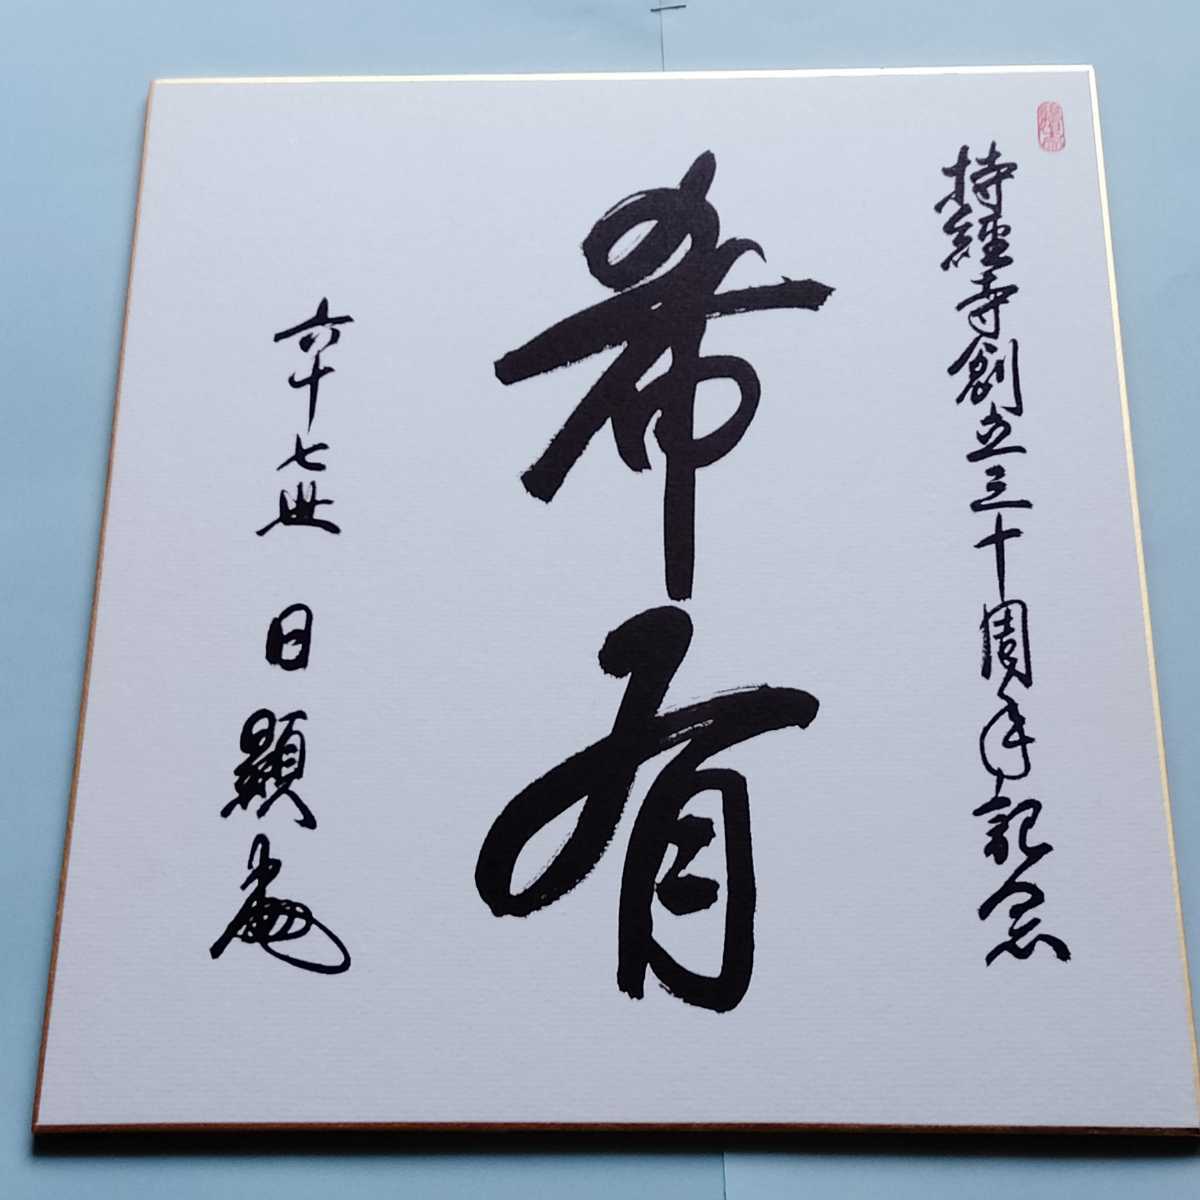 持經寺創立三十周年記念
希有
六十七世 日顯